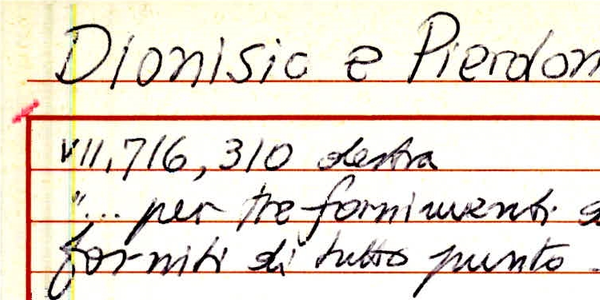 Dionisio e Pierdom
VII, 716, 310 destra
"... per tre fornimenti d
forniti di tutto punto